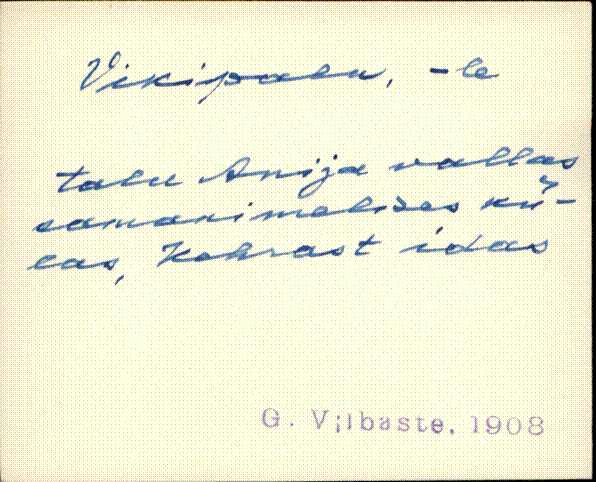 Vikipalu, -le
talu Anija vallas
samanimelises kü-
las, Kehrast idas
G. Vilbaste, 1908